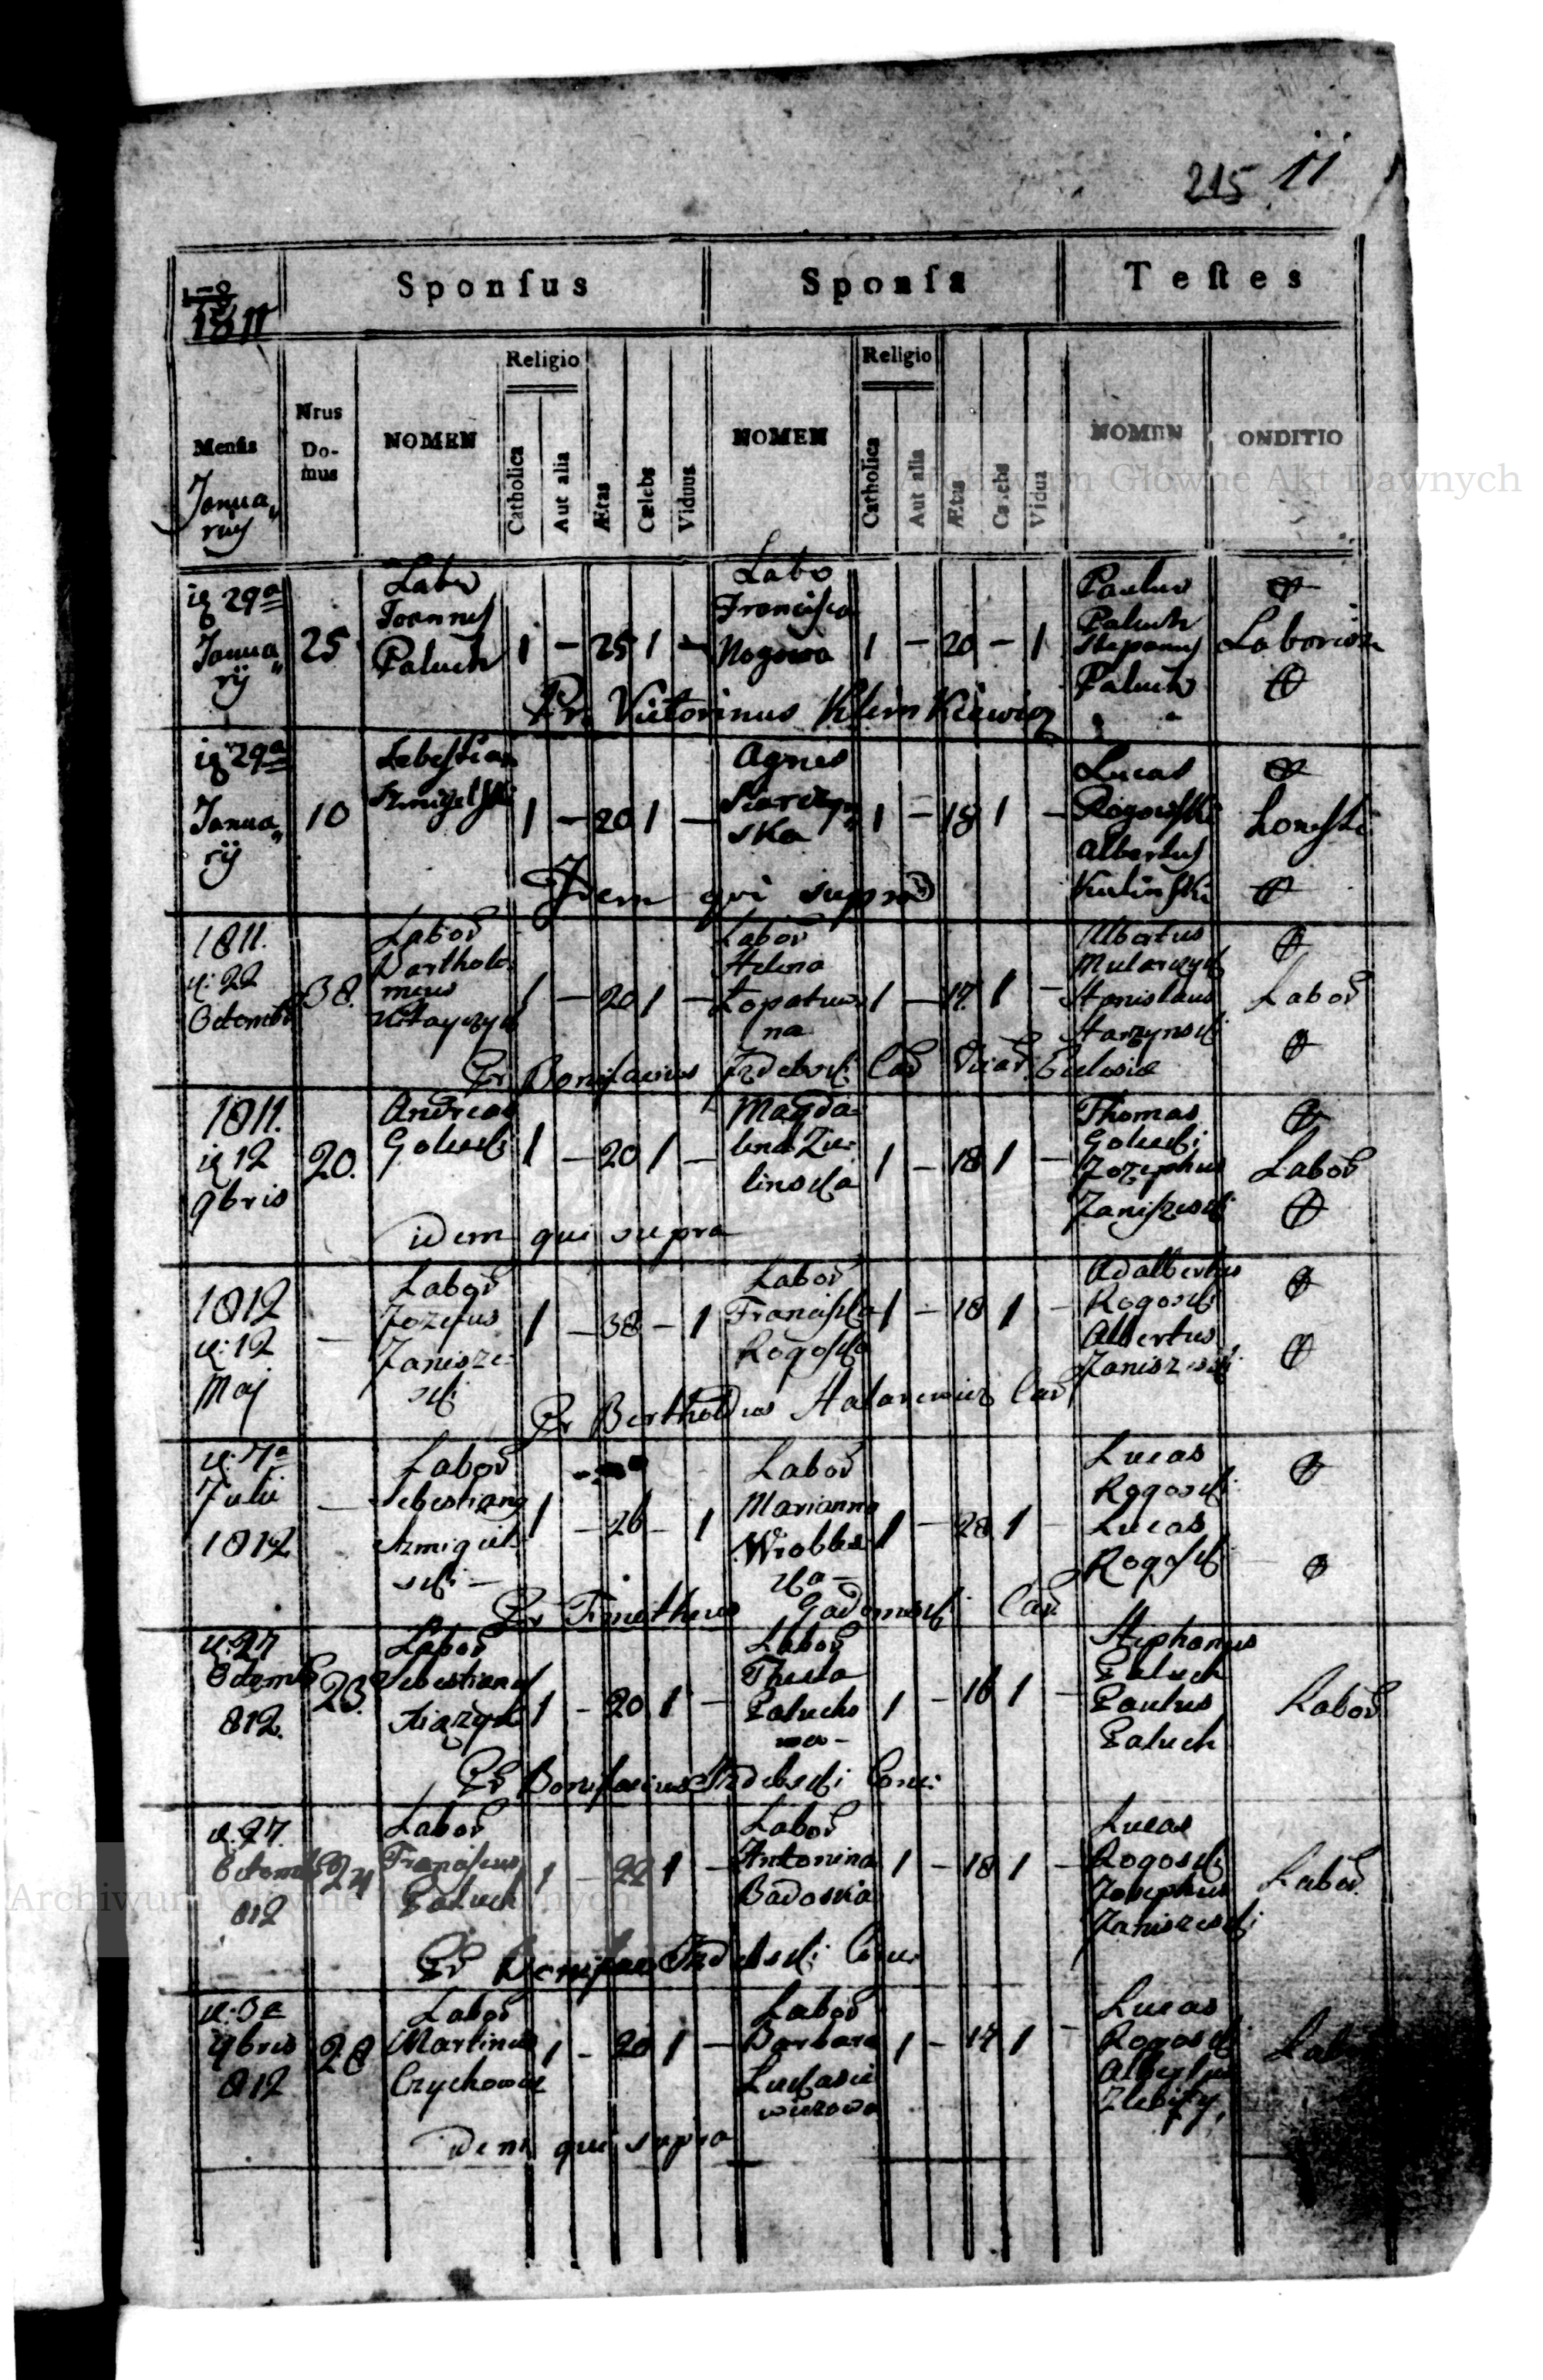 215 11
Sponſus Sponſa Teſtes
1811
Menſis
Nrus Do-mus
NOMEN
Religio
Catholica
Aut alia
Ætas
Cælebs
Viduus
NOMEN
Religio
Catholica
Aut alia
Ætas
Cælebs
Vidua
NOMEN
ONDITIO
Janua„
rij
Archiwum Główne Akt Dawnych
29a
Janua„
rij
25
Labo
Joannes
Paluch
1 – 25 1 –
Labo
Francisca
Nogowa
1 – 20 – 1
Paulus
Paluch
Stepanus
Paluch
Laborios
Pr. Victorinus Klimkiewicz
29a
Janua„
rij
10
Sebestian
Szmigelski
1 – 20 1 –
Agnes
ska
1 – 18 1 –
Lucas
Rogowski
Albertus
Kulinski
honesti
Idem qui supra
1811.
d: 22
Octombr
38.
Labor
Bartholo
meus
1 – 20 1 –
Labor
Helena
Łopatuw
na
1 – 17 1 –
Albertus
Mularczyk
Stanislaus
Starzynski
Labor
Fr Bonifacius Izdebski Cap Vicar Eclesie
1811.
12
9bris
20.
Andreas
Goluch
1 – 20 1 –
Magda
lena Zie
linska
1 – 18 1 –
Thomas
Jozephus
Janiszeski
Labor
idem qui supra
1812
d: 12
Maj
–
Labor
Jozefus
Janisze
ski
1 – 38 – 1
Labor
Franciska
Rogoska
1 – 18 1 –
Adalbertus
Rogoski
Albertus
Janiszeski
Fr Bertholdus
d: 7a
Julii
1812
–
Labor
Sebestianus
Szmigiel
ski –
1 – 26 – 1
Labor
Marianna
Wrobles
ka –
1 – 28 1 –
Lucas
Rogoski
Lucas
Rogoski
Fr Timotheus Gadomski
d: 27
Octomb
812.
23.
Labor
Sebestianus
1 – 20 1 –
Labor
Thecla
Palucho
wa –
1 – 16 1 –
Stephanus
Paluch
Paulus
Paluch
Labor
Fr Bonifacius Izdebski Conc:
d. 27.
Octomb
812
24
Labor
Franciscus
Paluch
1 – 22 1 –
Labor
Antonina
Badoska
1 – 18 1 –
Lucas
Rogoski
Josephus
Janiszeski
Labor
Fr Bonifac Izdebski Conc
Archiwum Główne Akt Dawnych
d: 3a
9bris
812
28
Labor
Martinus
1 – 20 1 –
Labor
Barbara
Lukasie
wiczowa
1 – 17 1 –
Lucas
Rogoski
Albertus
Lab
idem qui supra